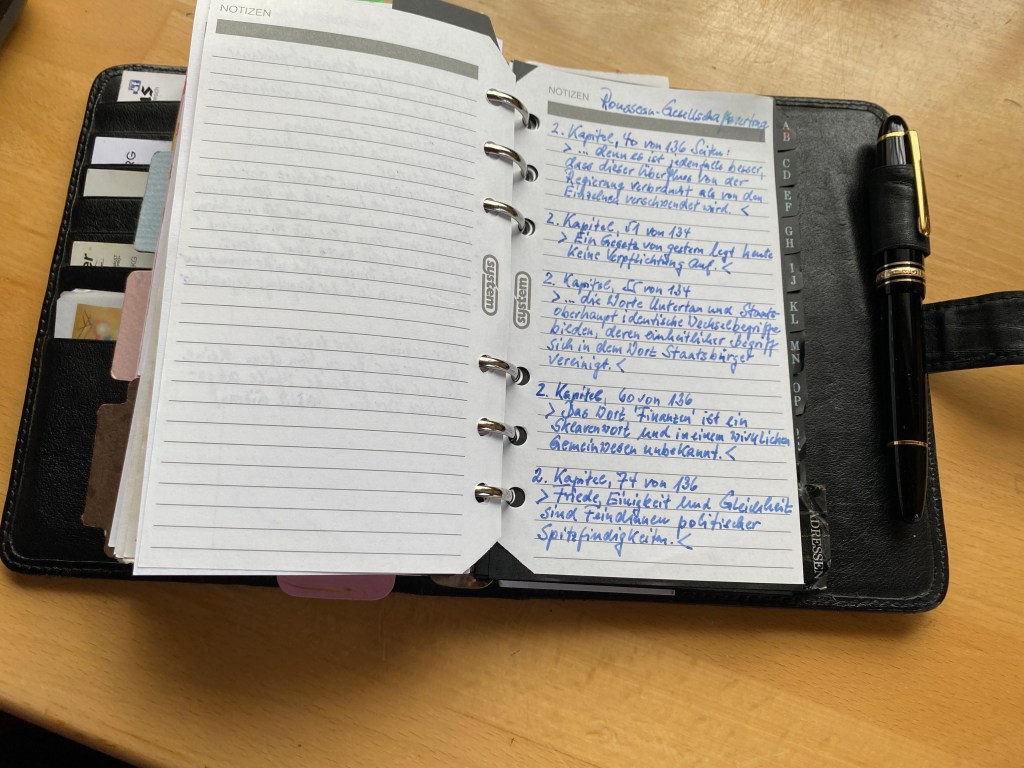 NOTIZEN
NOTIZEN Rousseau-Gesellschaftsvertrag
2. Kapitel, 40 von 136 Seiten:
> ... denn es ist jedenfalls besser,
dass dieser Überfluss von der
Regierung verbraucht als von den
Einzelnen verschwendet wird. <
2. Kapitel, 51 von 134
> Ein Gesetz von gestern legt heute
keine Verpflichtung auf. <
2. Kapitel, 55 von 134
> ... die Worte Untertan und Staats-
oberhaupt identische Wechselbegriffe
bieden, deren einheitlicher Begriff
sich in dem Wort Staatsbürger
vereinigt. <
2. Kapitel, 60 von 136
> Das Wort 'Finanzen' ist ein
Sklavenwort und in einem wirklichen
Gemeinwesen unbekannt. <
2. Kapitel, 74 von 136
> Friede, Einigkeit und Gleichheit
sind Feindinnen politischer
Spitzfindigkeiten. <
system
system
A
B
C
D
E
F
G H
I
J
K
L
M N
O P
ADRESSEN